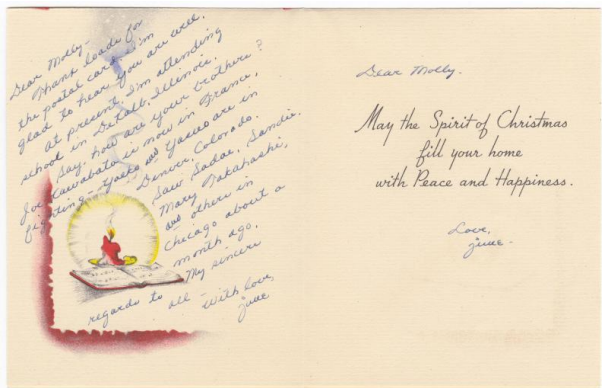 Dear Molly-
Thanks loads for
the postal card. I'm
glad to hear you are well.
At present I'm attending
school in DeKalb, Illinois.
Say, how are your brothers?
Joe Kawabata is now in France,
fighting - Yosko and Yasko are in
Denver, Colorado.
Saw Sadae, Sandie,
Mary Nakahashi,
and others in
Chicago about a
month ago.
My sincere
regards to all -
With love,
June
Dear Molly.
May the Spirit of Christmas
fill your home
with Peace and Happiness.
Love,
June.